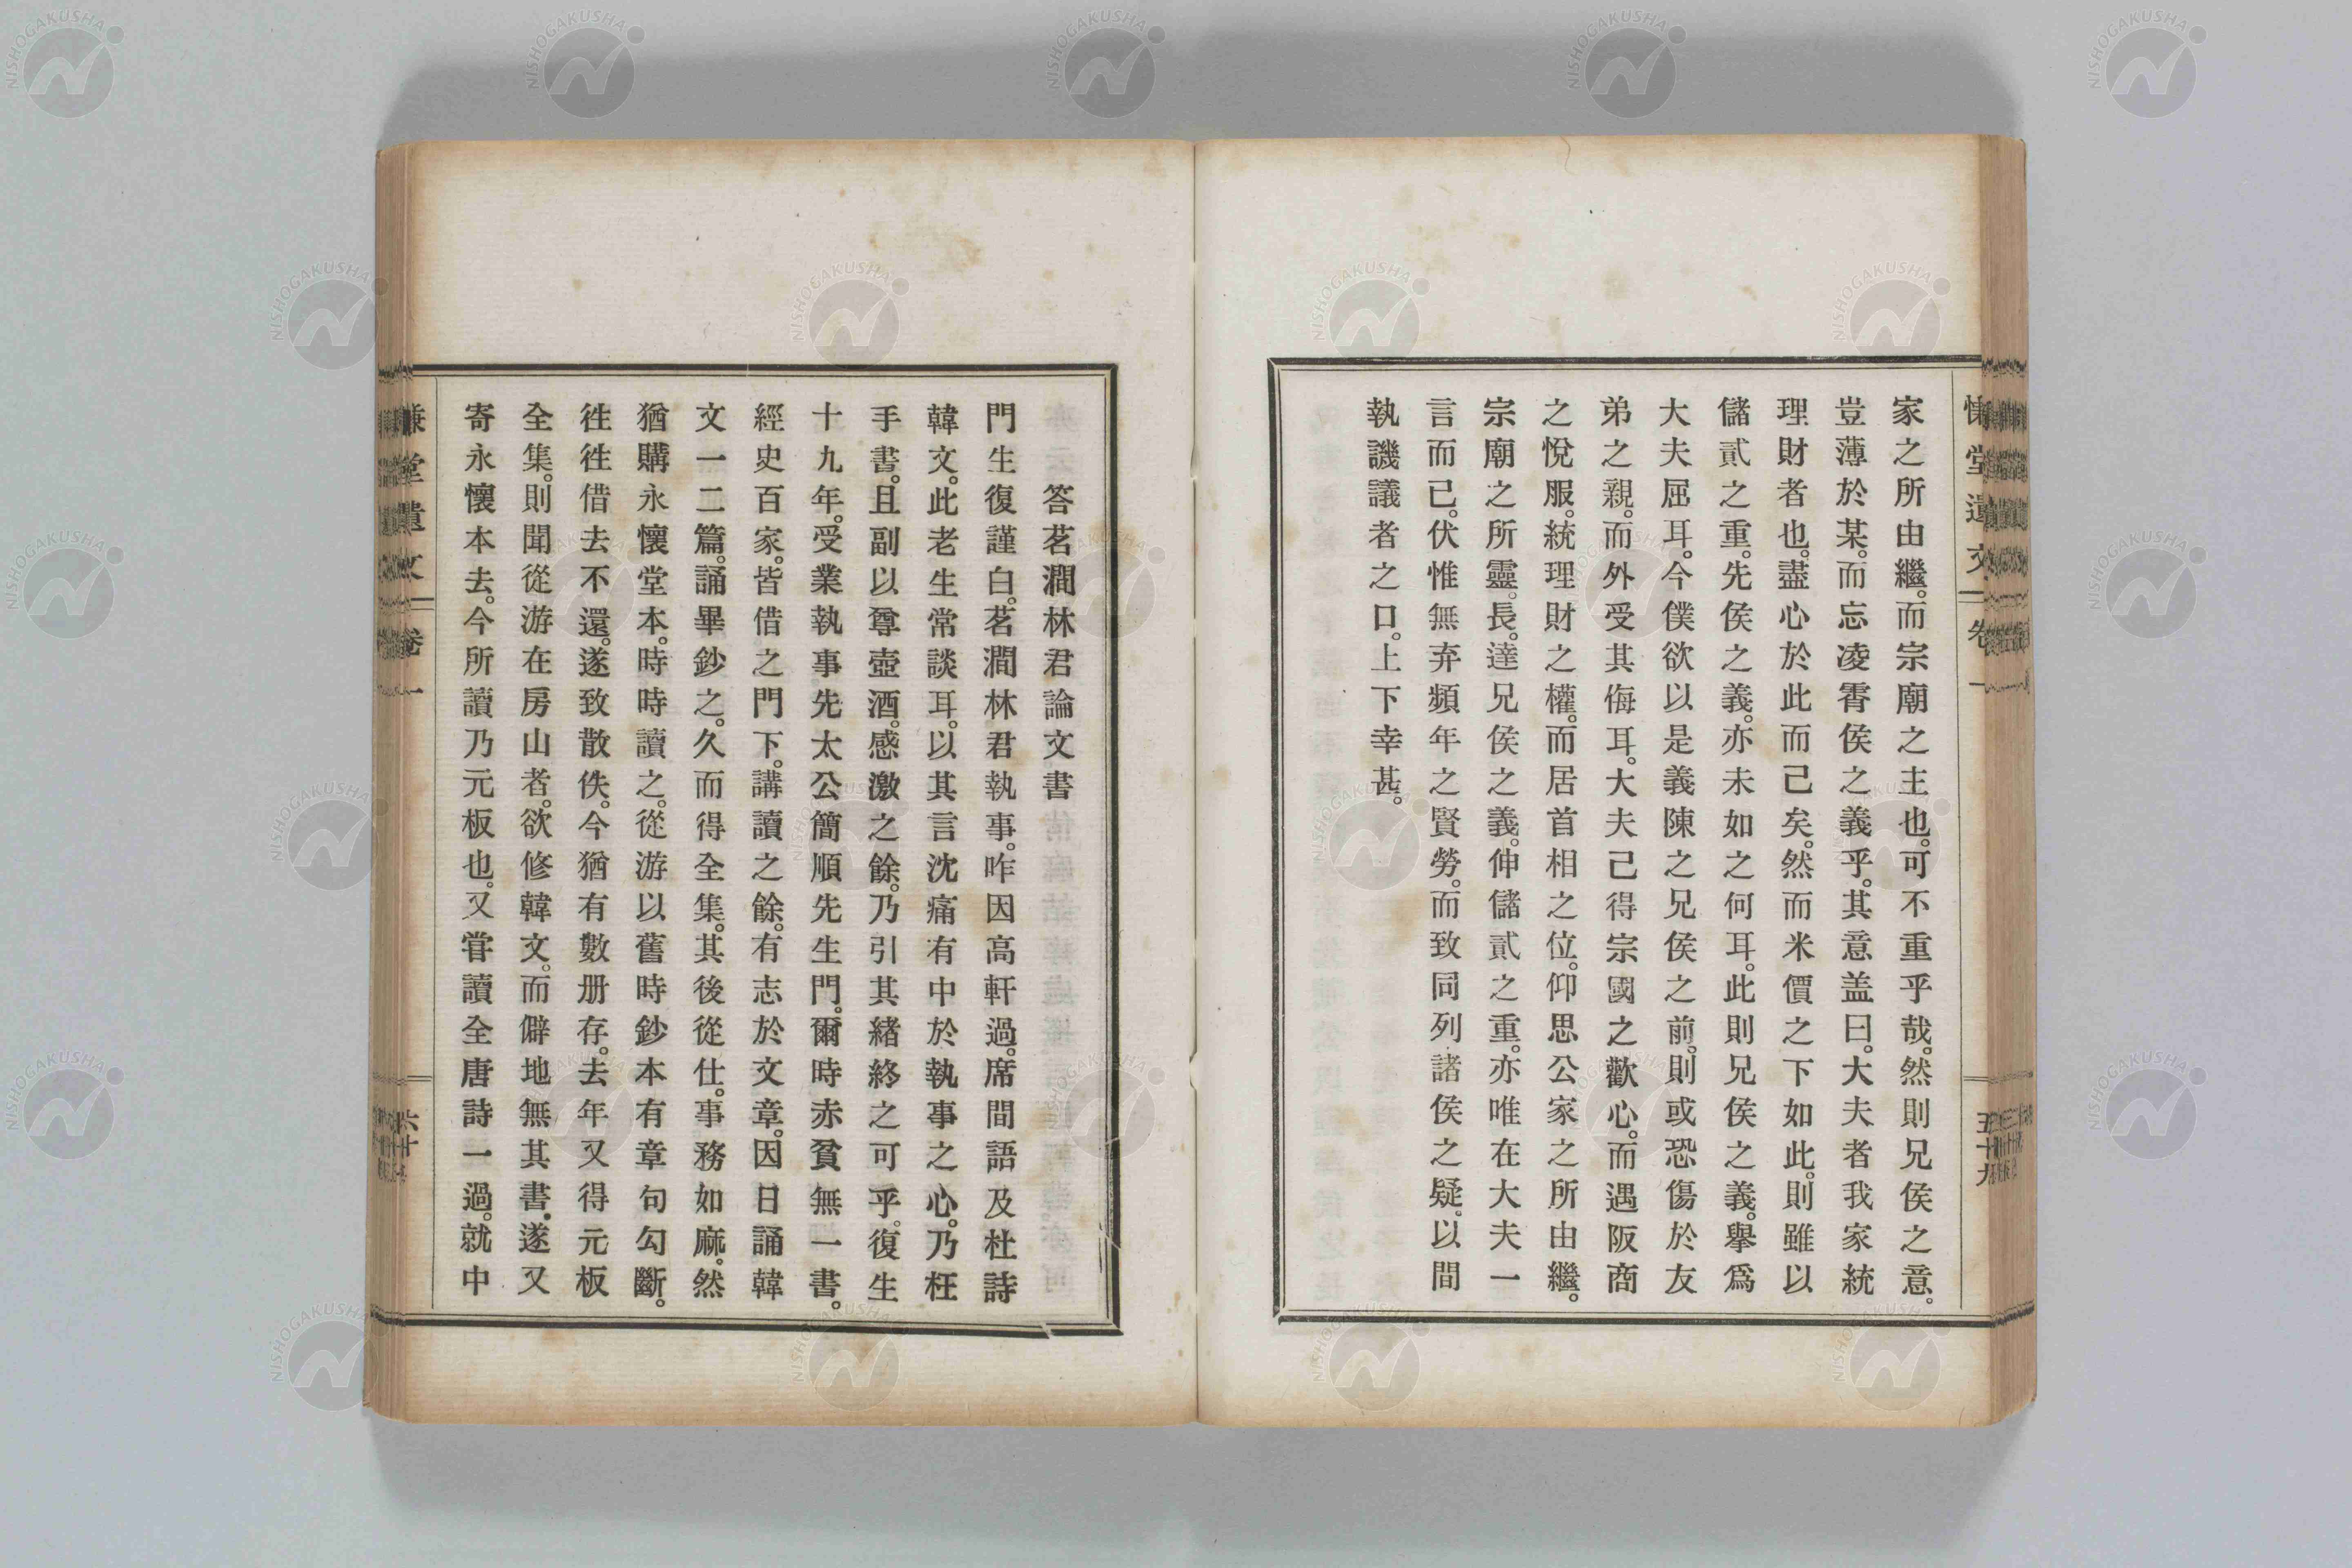 慊堂遺文 卷一 五十九
家之所由繼。而宗廟之主也。可不重乎哉。然則兄侯之意。
豈薄於某。而忘凌霄侯之義乎。其意盖曰。大夫者我家統
理財者也。盡心於此而已矣。然而米價之下如此。則雖以
儲貳之重。先侯之義。亦未如之何耳。此則兄侯之義。舉爲
大夫屈耳。今僕欲以是義陳之兄侯之前。則或恐傷於友
弟之親。而外受其侮耳。大夫已得宗國之歡心。而遇阪商
之悅服。統理財之權。而居首相之位。仰思公家之所由繼。
宗廟之所靈。長。達兄侯之義。伸儲貳之重。亦唯在大夫一
言而已。伏惟無弃頻年之賢勞。而致同列諸侯之疑。以間
執譏議者之口。上下幸甚。
答茗澗林君論文書
門生復謹白。茗澗林君執事。咋因高軒過。席間語及杜詩
韓文。此老生常談耳。以其言沈痛有中於執事之心。乃枉
手書。且副以尊壺酒。感激之餘。乃引其緖終之可乎。復生
十九年。受業執事先太公簡順先生門。爾時赤貧無一書。
經史百家。皆借之門下。講讀之餘。有志於文章。因日誦韓
文一二篇。誦畢鈔之。久而得全集。其後從仕。事務如麻。然
猶購永懷堂本。時時讀之。從游以舊時鈔本有章句勾斷。
徃徃借去不還。遂致散佚。今猶有數册存。去年又得元板
全集。則聞從游在房山者。欲修韓文。而僻地無其書。遂又
寄永懷本去。今所讀乃元板也。又甞讀全唐詩一過。就中
慊堂遺文 卷一 六十
NISHOGAKUSHA